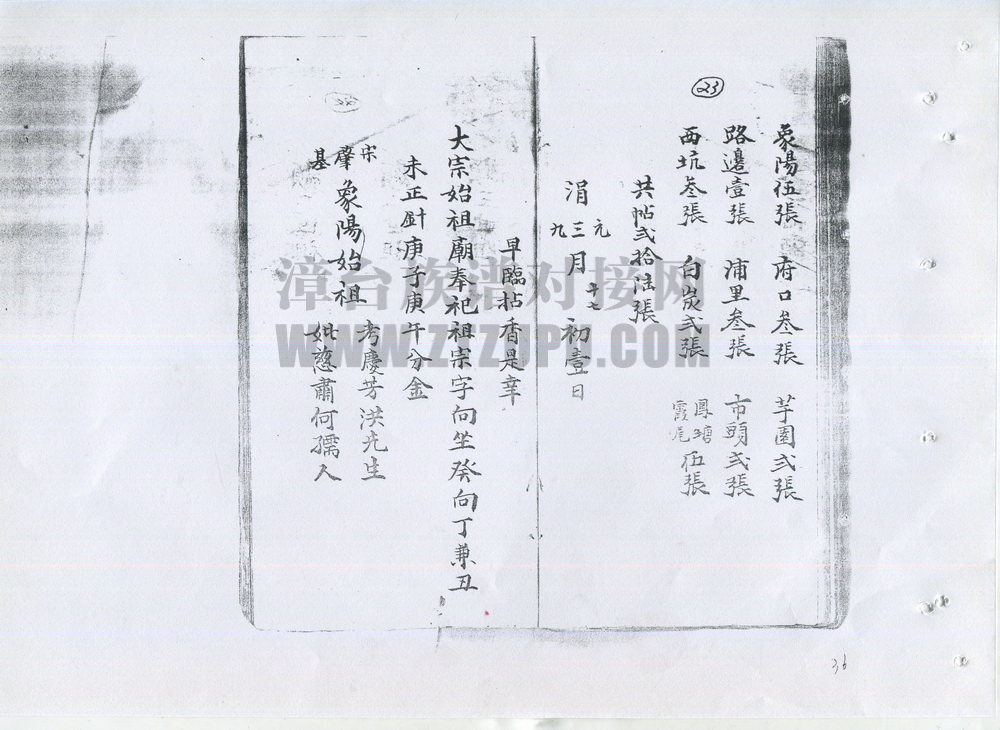 23
象陽伍張 府口叁張 芋園弍張
路邊壹張 浦里叁張 市頭弍張
西坑叁張 白炭弍張 鳳塘霞尾伍張
共帖弍拾陸張
涓 元三九月 十七 初壹日
早臨拈香是幸
大宗始祖廟奉祀祖宗字向坐癸向丁兼丑
未正針庚子庚午分金
宋肇基 象陽始祖 考慶芳洪先生
妣慈肅何孺人
漳台族谱对接网
WWW.ZTZUPU.COM
36